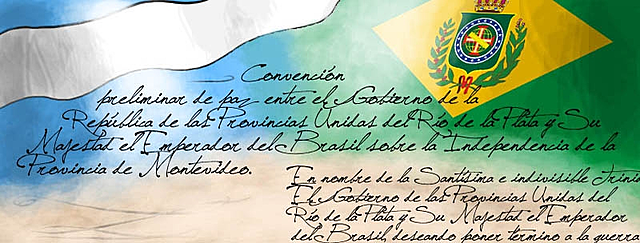 Convención
preliminar de paz entre el Gobierno de la
República de las Provincias Unidas del Río de la Plata y Su
Majestad el Emperador del Brasil sobre la Independencia de la
Provincia de Montevideo.
En nombre de la Santísima e indivisible Trini
El Gobierno de las Provincias Unidas del
Río de la Plata y Su Majestad el Emperador
del Brasil, deseando poner termino a la guerra